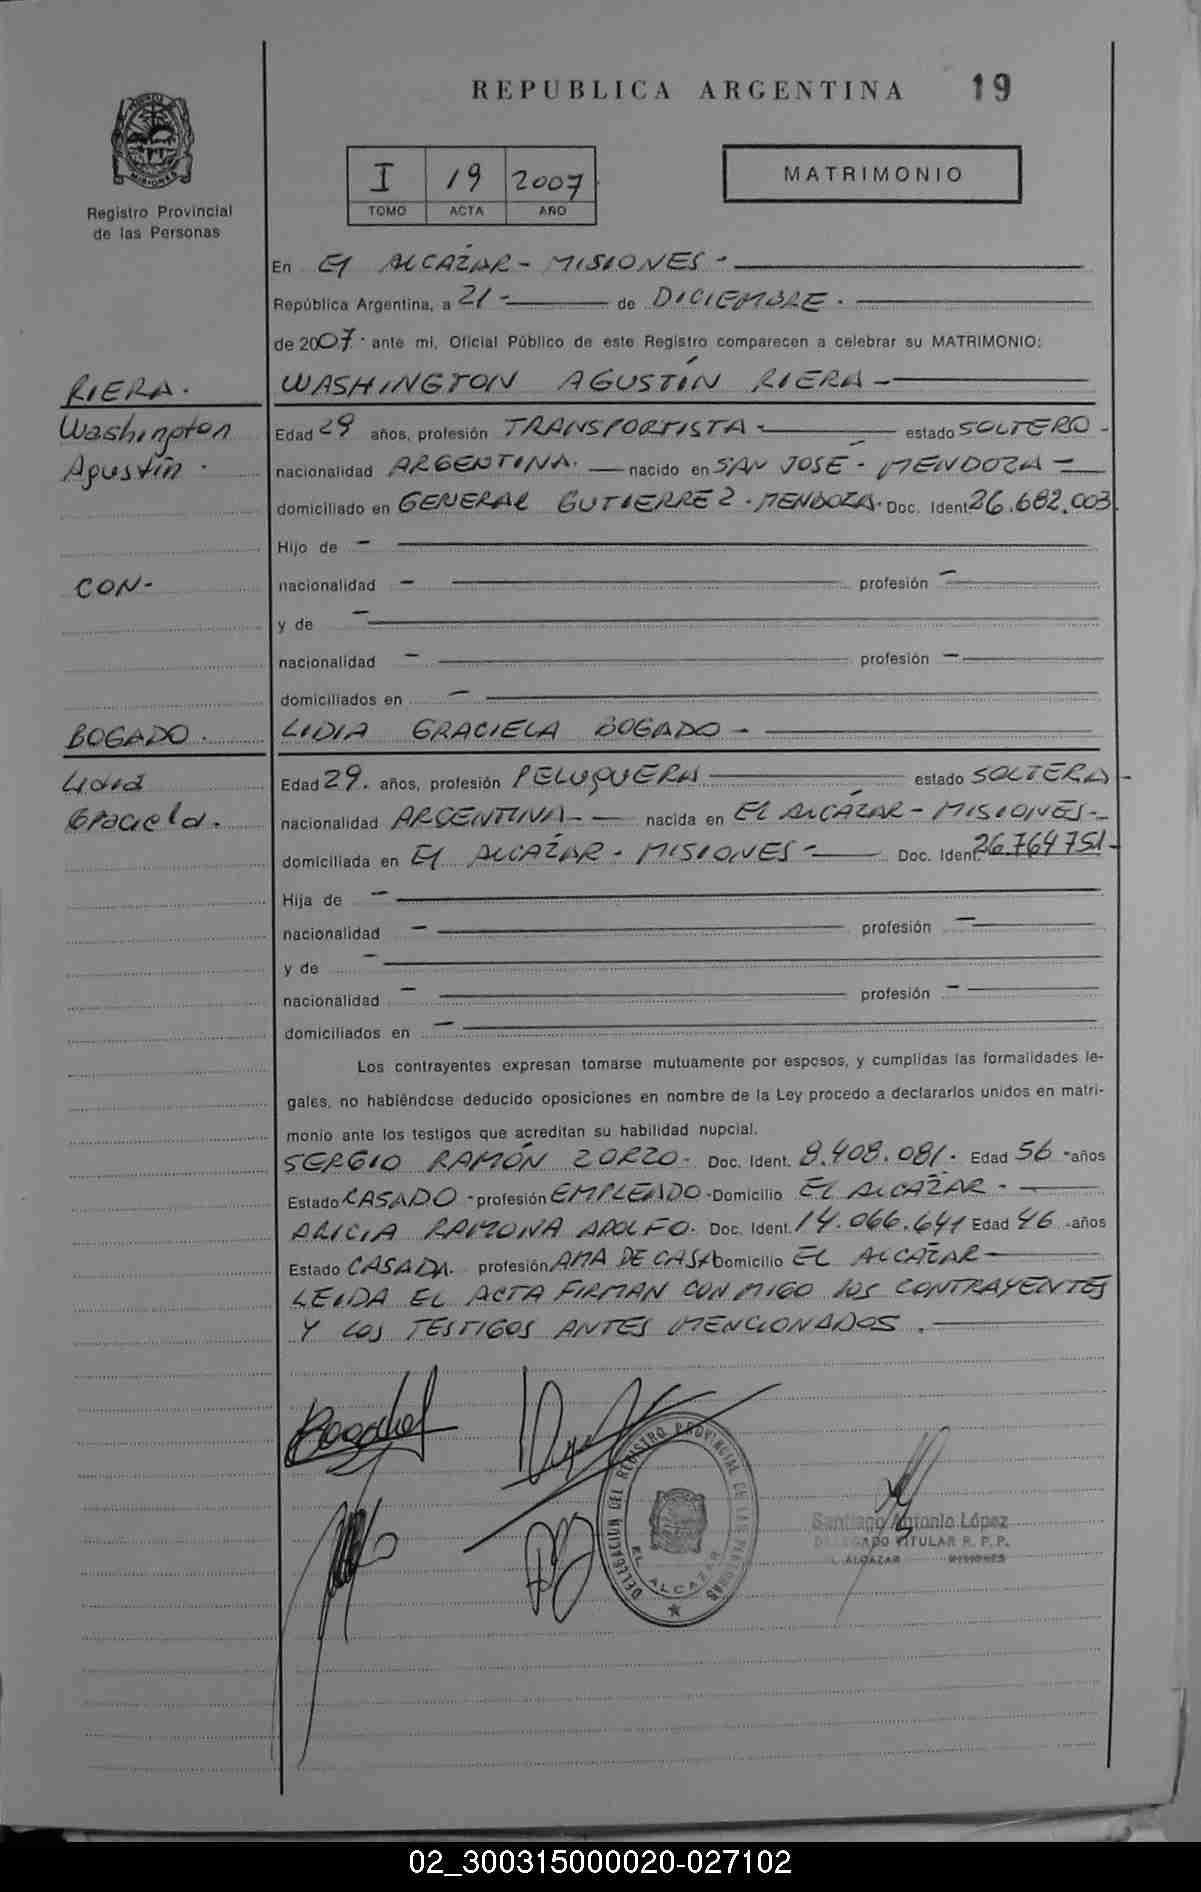 REPUBLICA ARGENTINA 19
MISIONES
Registro Provincial
de las Personas
I 19 2007
TOMO ACTA AÑO
MATRIMONIO
En El ALCAZAR - MISIONES -
República Argentina, a 21 - de DICIEMBRE.
de 2007 ante mí, Oficial Público de este Registro comparecen a celebrar su MATRIMONIO:
RIERA.
WASHINGTON AGUSTÍN RIERA -
Washington
Edad 29 años, profesión TRANSPORTISTA - estado SOLTERO -
Agustín.
nacionalidad ARGENTINA. nacido en SAN JOSÉ - MENDOZA -
domiciliado en GENERAL GUTIERREZ - MENDOZA. Doc. Ident. 26.682.003
Hijo de -
CON-
nacionalidad - profesión -
y de -
nacionalidad - profesión -
domiciliados en -
BOGADO.
LIDIA GRACIELA BOGADO -
Lidia
Edad 29. años, profesión PELUQUERA estado SOLTERA -
Graciela.
nacionalidad ARGENTINA - nacida en EL ALCÁZAR - MISIONES -
domiciliada en El ALCAZAR - MISIONES - Doc. Ident. 26.764 751 -
Hija de -
nacionalidad - profesión -
y de -
nacionalidad - profesión -
domiciliados en -
Los contrayentes expresan tomarse mutuamente por esposos, y cumplidas las formalidades le-
gales, no habiéndose deducido oposiciones en nombre de la Ley procedo a declararlos unidos en matri-
monio ante los testigos que acreditan su habilidad nupcial.
SERGIO RAMÓN ZORZO - Doc. Ident. 8.408.081. Edad 56 -años
Estado CASADO - profesión EMPLEADO - Domicilio EL ALCAZAR -
ALICIA RAMONA ADOLFO. Doc. Ident. 14.066.641 Edad 46 -años
Estado CASADA. profesión AMA DE CASA Domicilio EL ALCAZAR -
LEIDA EL ACTA FIRMAN CONMIGO los CONTRAYENTES
Y LOS TESTIGOS ANTES MENCIONADOS.
Bogado
DELEGACION DEL REGISTRO PROVINCIAL DE LAS PERSONAS
EL ALCAZAR
Santiago Antonio López
DELEGADO TITULAR R. P. P.
EL ALCAZAR MISIONES
02_300315000020-027102